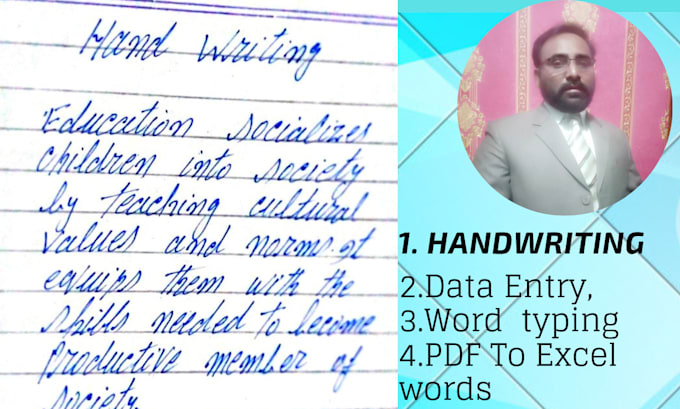 Hand Writing
Education socializes
children into society
by teaching cultural
values and norms. It
equips them with the
skills needed to become
productive member of
society.
1. HANDWRITING
2.Data Entry,
3.Word typing
4.PDF To Excel
words